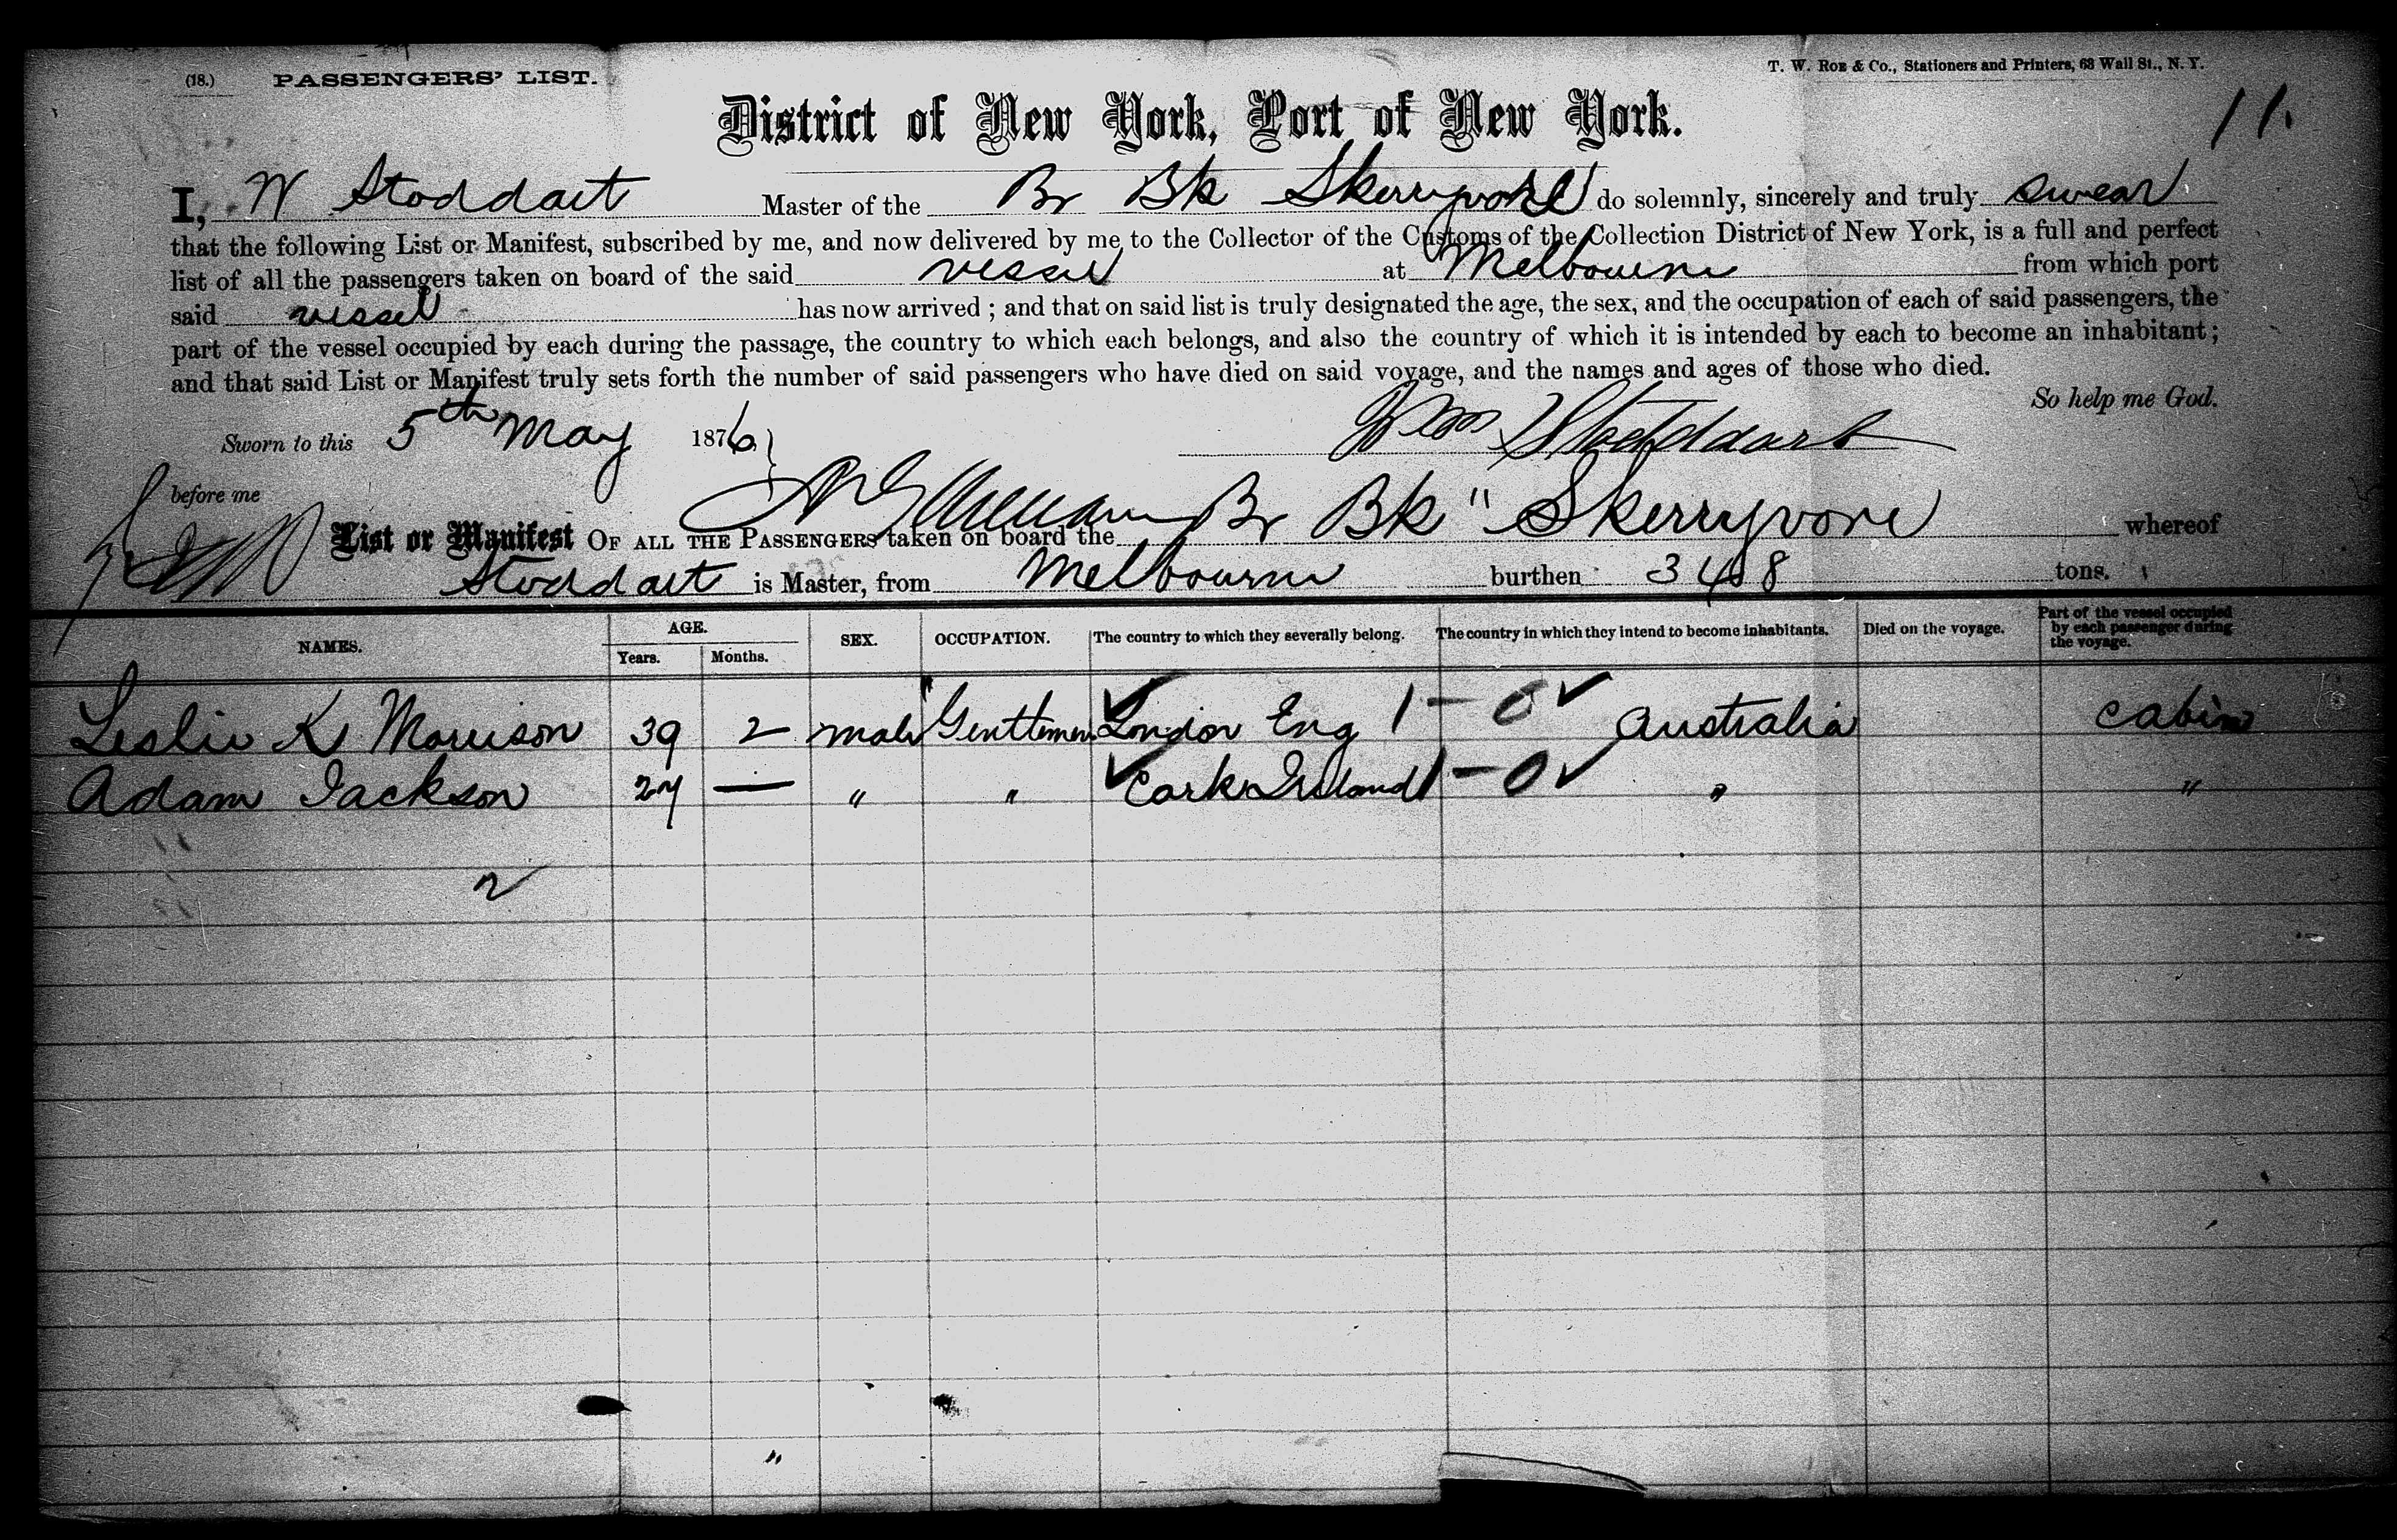 (18.) PASSENGERS' LIST.
T. W. Roe & Co., Stationers and Printers, 63 Wall St., N. Y.
11.
District of New York, Port of New York.
I, W Stoddart Master of the Br Bk Skerryvore do solemnly, sincerely and truly swear
that the following List or Manifest, subscribed by me, and now delivered by me to the Collector of the Customs of the Collection District of New York, is a full and perfect
list of all the passengers taken on board of the said vessel at Melbourne from which port
said vessel has now arrived ; and that on said list is truly designated the age, the sex, and the occupation of each of said passengers, the
part of the vessel occupied by each during the passage, the country to which each belongs, and also the country of which it is intended by each to become an inhabitant;
and that said List or Manifest truly sets forth the number of said passengers who have died on said voyage, and the names and ages of those who died.
So help me God.
Sworn to this 5th May 1876 Wm Stoddart
before me
List or Manifest OF ALL THE PASSENGERS taken on board the Br Bk "Skerryvore whereof
Stoddart is Master, from Melbourne burthen 348 tons.
NAMES. AGE. Years. Months. SEX. OCCUPATION. The country to which they severally belong. The country in which they intend to become inhabitants. Died on the voyage. Part of the vessel occupied by each passenger during the voyage.
Leslie K Morrison 39 2 male Gentlemen London Eng 1 - 0 ✓ Australia cabin
Adam Jackson 27 — " " Cork Ireland 1 - 0 ✓ " "
2